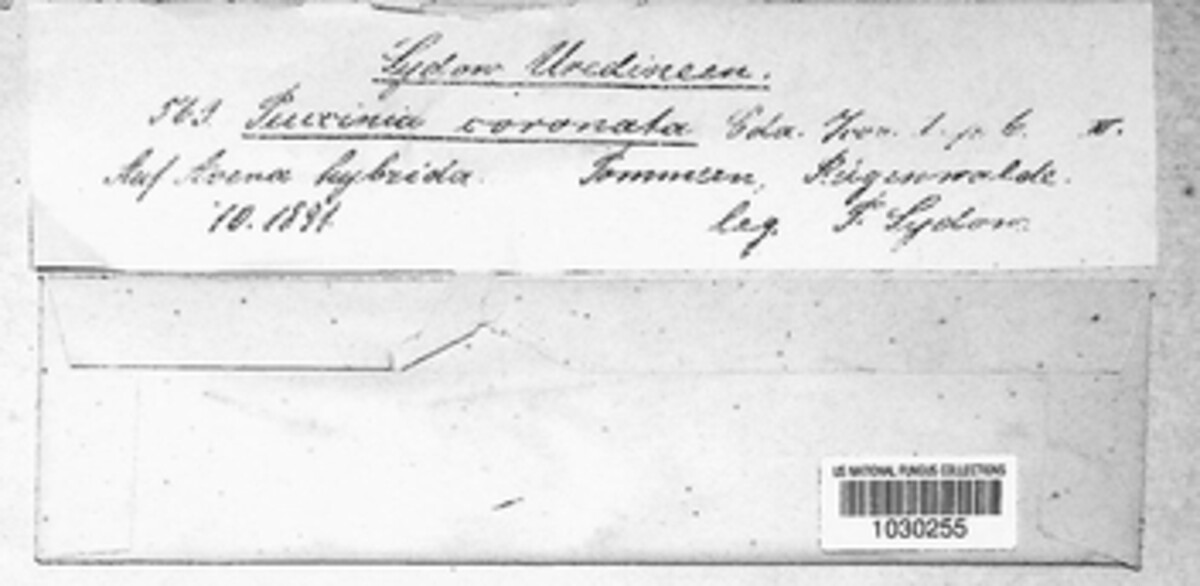 Sydow Uredineen.
563. Puccinia coronata Cda. Icon. 1. p. 6. III.
Auf Avena hybrida. Pommern, Rügenwalde.
10. 1891. leg. P. Sydow.
US NATIONAL FUNGUS COLLECTIONS
1030255